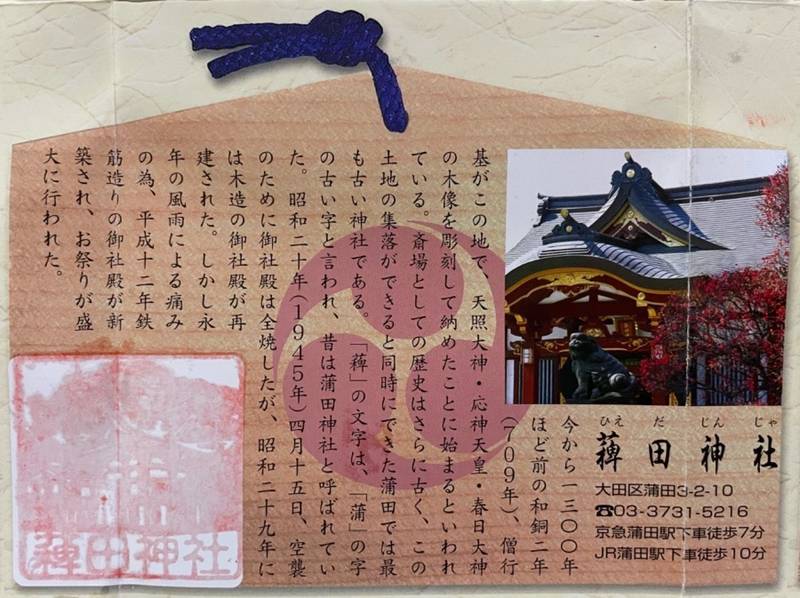 ひえ だ じん じゃ
薭田神社
大田区蒲田3-2-10
☎03-3731-5216
京急蒲田駅下車徒歩7分
JR蒲田駅下車徒歩10分
今から一三〇〇年
ほど前の和銅二年
(709年)、僧行
基がこの地で、天照大神・応神天皇・春日大神
の木像を彫刻して納めたことに始まるといわれ
ている。斎場としての歴史はさらに古く、この
土地の集落ができると同時にできた蒲田では最
も古い神社である。「薭」の文字は、「蒲」の字
の古い字と言われ、昔は蒲田神社と呼ばれてい
た。昭和二十年(1945年)四月十五日、空襲
のために御社殿は全焼したが、昭和二十九年に
は木造の御社殿が再
建された。しかし永
年の風雨による痛み
の為、平成十二年鉄
筋造りの御社殿が新
築され、お祭りが盛
大に行われた。
薭田神社